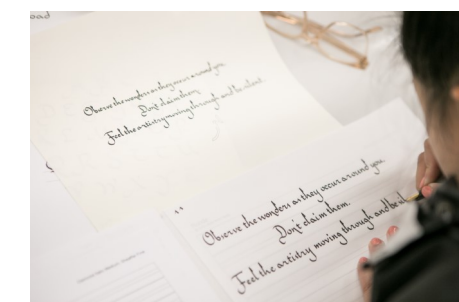 oad
Observe the wonders as they occur around you.
Don't claim them.
Feel the artistry moving through and be silent.
Observe the wonders as they occur around you.
Don't claim them.
Feel the artistry moving through and be sil